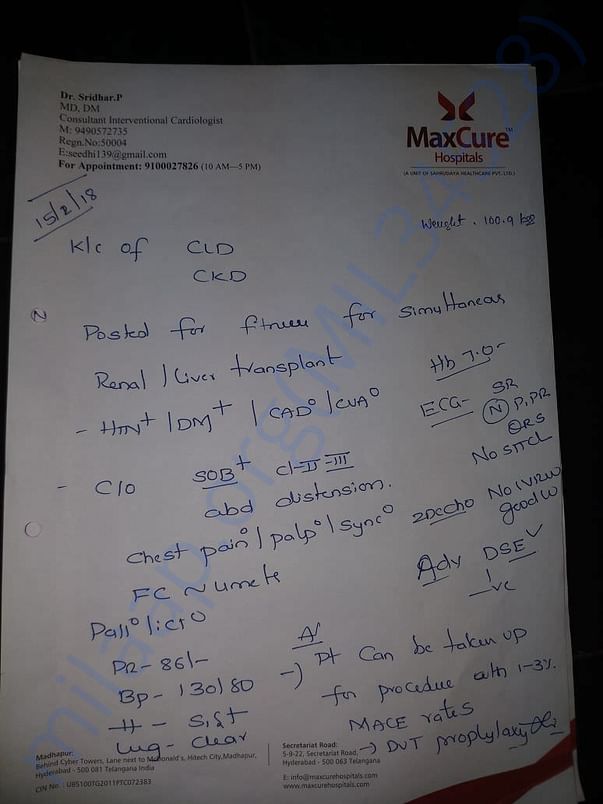 Dr. Sridhar.P
MD, DM
Consultant Interventional Cardiologist
M: 9490572735
Regn.No:50004
E:seedhi139@gmail.com
For Appointment: 9100027826 (10 AM—5 PM)
MaxCure™
Hospitals
(A UNIT OF SAHRUDAYA HEALTHCARE PVT. LTD.)
15/2/18
Weight . 100.9
K/c of CLD
CKD
N
Posted for fitness for simultaneous
Renal / Liver transplant
Hb 7.0
- HTN+ / DM+ / CAD° / CVA°
ECG- SR
N P, PR
QRS
No ST TCL
- C/O SOB+ Cl-II-III
abd distension.
2Decho No
good
Chest pain° / palp° / Sync°
Adv DSE
-ve
FC ~ 4 mets
Pall° Ict°
PR- 86/-
Bp- 130/80
H - S1S2+
Lug - Clear
A/
-) Pt Can be taken up
for procedue with 1-3%.
MACE rates
-) DVT prophylaxy
Madhapur:
Behind Cyber Towers, Lane next to McDonald's, Hitech City,Madhapur,
Hyderabad - 500 081 Telangana India
CIN No : U85100TG2011PTC072383
Secretariat Road:
5-9-22, Secretariat Road,
Hyderabad - 500 063 Telangana
E: info@maxcurehospitals.com
www.maxcurehospitals.com